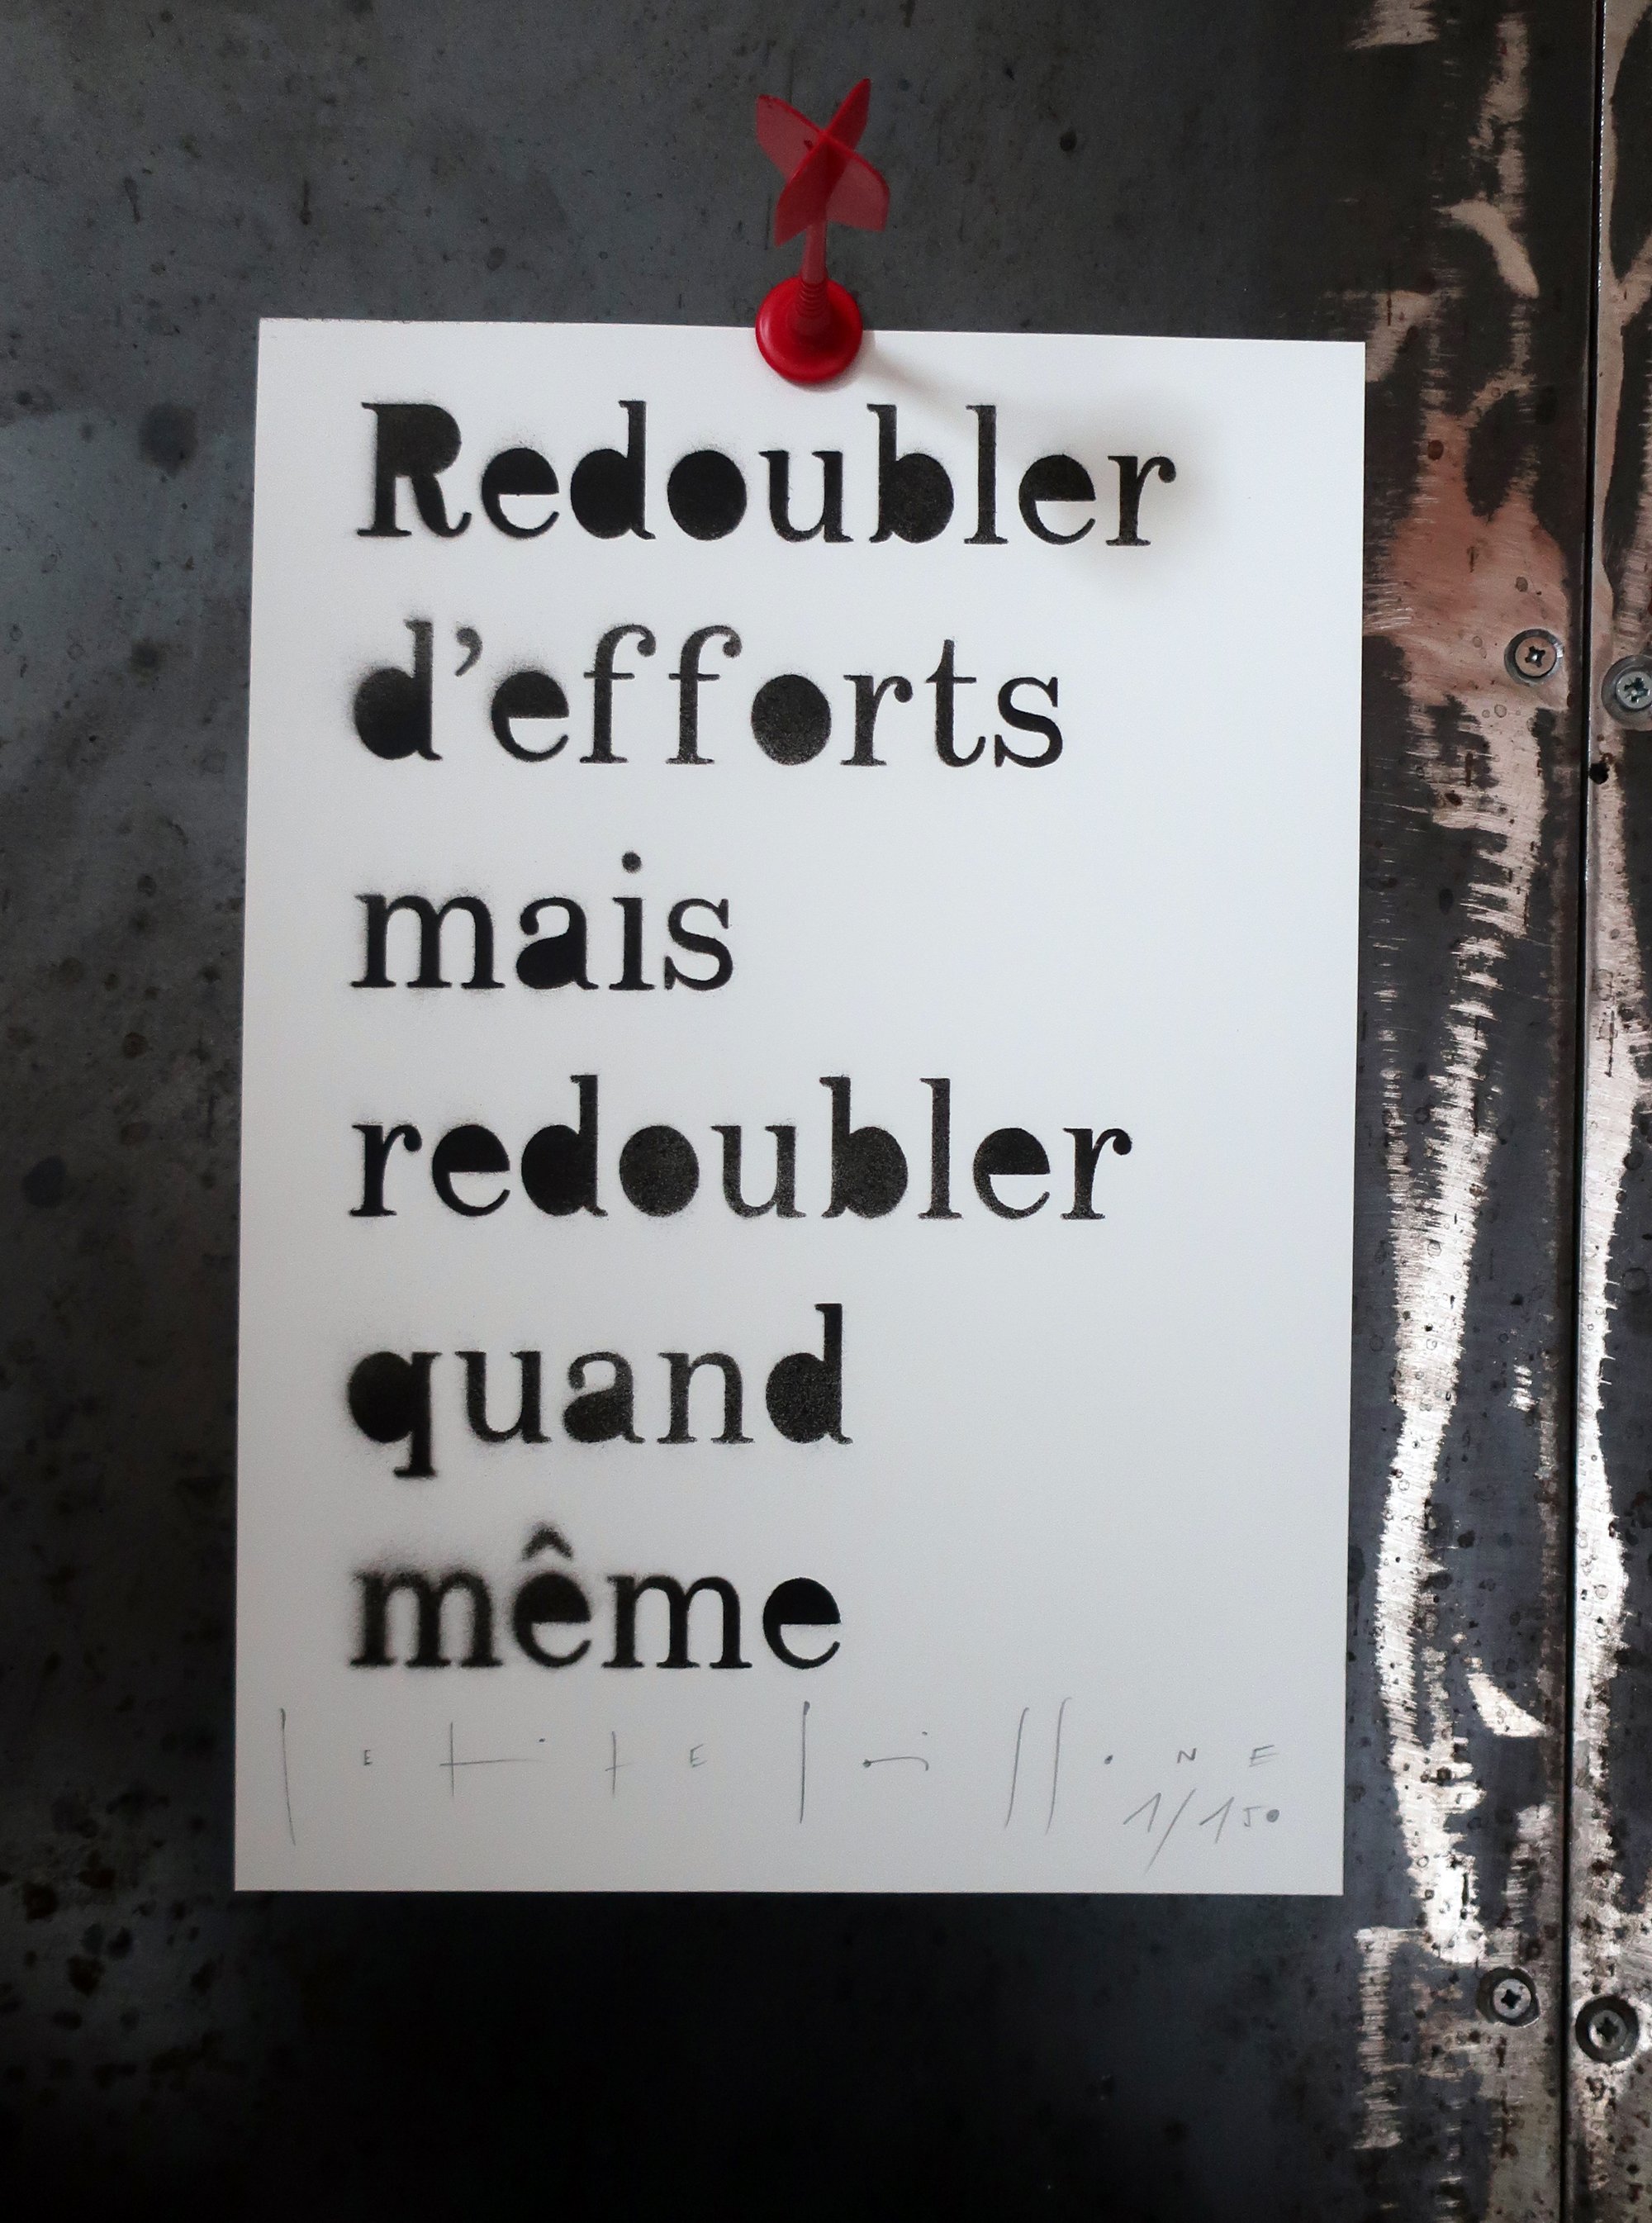 Redoubler
d’efforts
mais
redoubler
quand
même
PETITE POISSONE
1/150